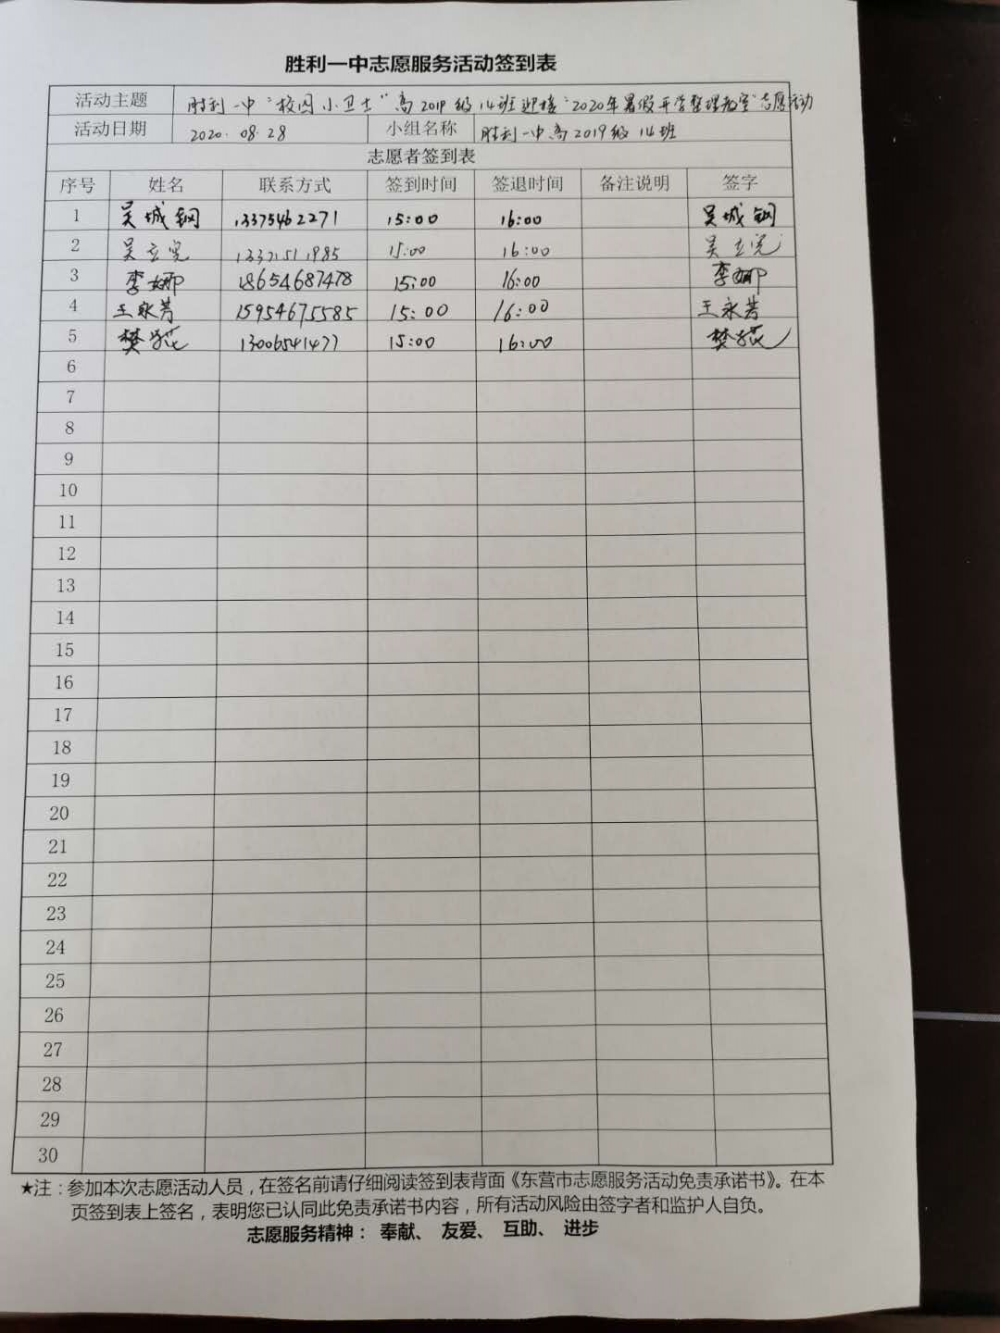 胜利一中志愿服务活动签到表
活动主题 胜利一中“校园小卫士”高2019级14班迎接“2020年暑假开学整理教室”志愿活动
活动日期 2020.08.28 小组名称 胜利一中高2019级14班
志愿者签到表
序号 姓名 联系方式 签到时间 签退时间 备注说明 签字
1 吴城钢 13375462271 15:00 16:00 吴城钢
2 吴立 15:00 16:00 吴立
3 李娜 18654687478 15:00 16:00 李娜
4 王永芳 15954675585 15:00 16:00 王永芳
5 樊 13006541477 15:00 16:00 樊
6
7
8
9
10
11
12
13
14
15
16
17
18
19
20
21
22
23
24
25
26
27
28
29
30
★注：参加本次志愿活动人员，在签名前请仔细阅读签到表背面《东营市志愿服务活动免责承诺书》。在本
页签到表上签名，表明您已认同此免责承诺书内容，所有活动风险由签字者和监护人自负。
志愿服务精神： 奉献、 友爱、 互助、 进步